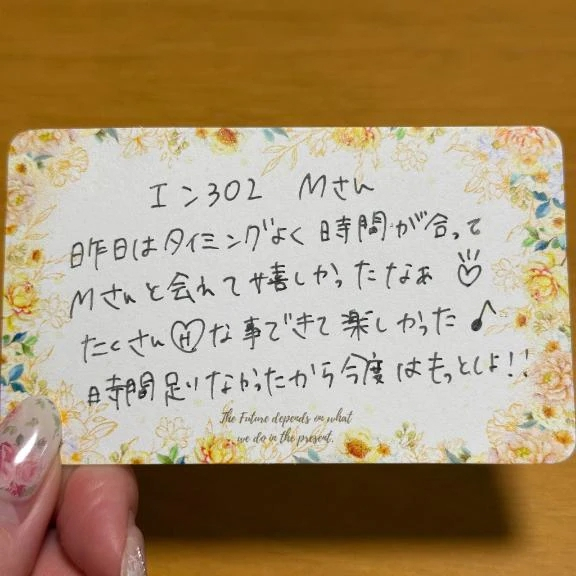 エン302 Mさん
昨日はタイミングよく時間が合って
Mさんと会れて嬉しかったなぁ♡
たくさんHな事できて楽しかった♪
時間足りなかったから今度はもっとしよ!!
The Future depends on what
we do in the present.